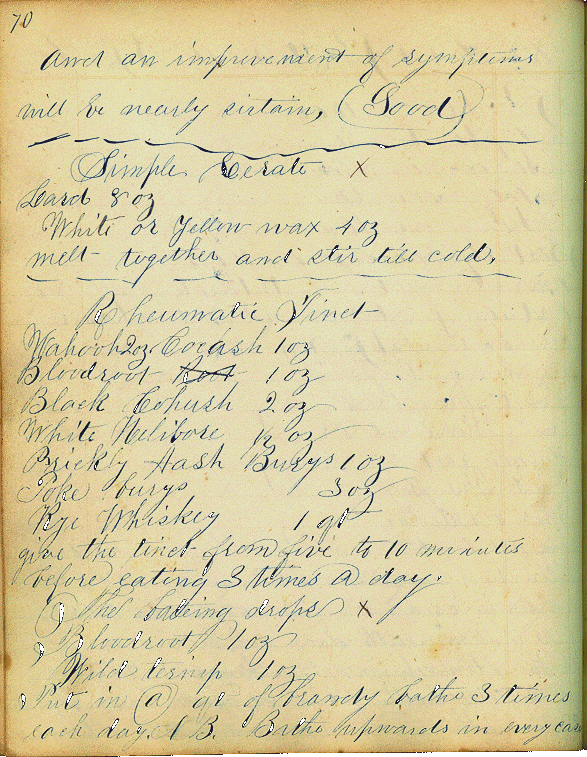 70
And an improvement of symptoms
will be nearly sirtain, (Good)
Simple Cerate X
Lard 8 oz
White or Yellow wax 4 oz
melt together and stir till cold.
Rheumatic Tinct
Wahooh 2oz Cocash 1 oz
Bloodroot Root 1 oz
Black Cohush 2 oz
White Helibore 1/2 oz
Prickly Aash Burys 1 oz
Poke burys 3 oz
Rye Whiskey 1 qt
give the tinct from five to 10 minutes
before eating 3 times a day.
The bateing drops X
Bloodroot 1 oz
Wild ternip 1 oz
Put in (a) qt of brandy bathe 3 times
each day. N B. Bathe upwards in every case